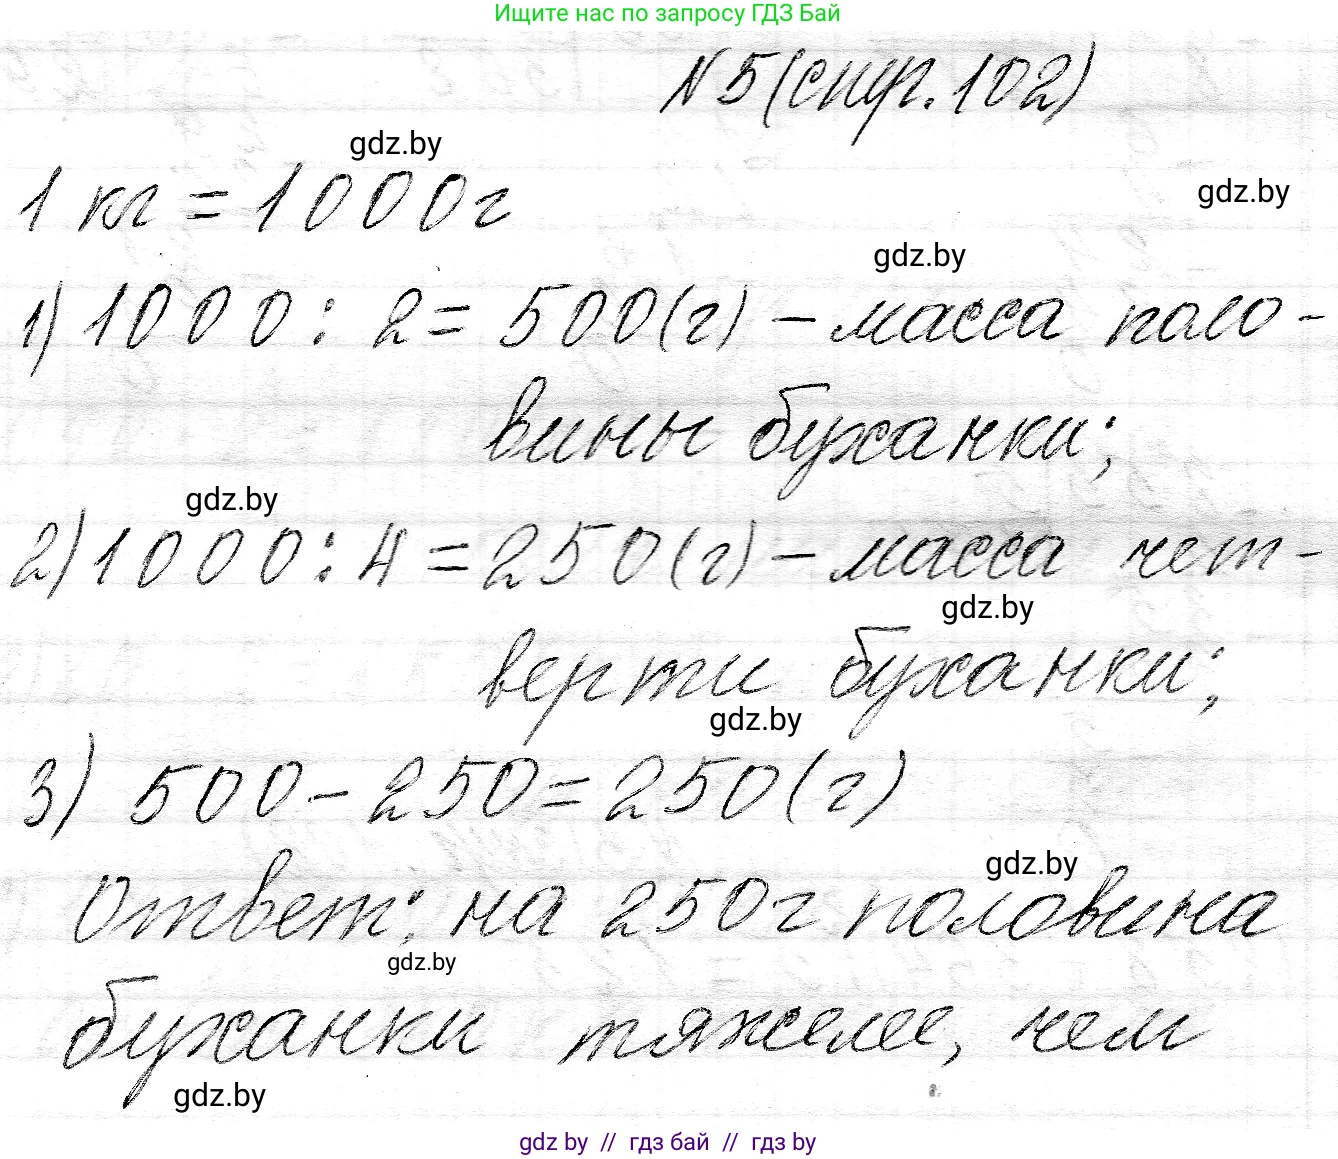 Ищите нас по запросу ГДЗ Бай
№5(стр.102)
gdz.by
1 кг = 1000г
gdz.by
gdz.by
1) 1000 : 2 = 500(г) – масса поло-
вины буханки;
gdz.by
2) 1000 : 4 = 250(г) – масса чет-
gdz.by
верти буханки;
gdz.by
3) 500 – 250 = 250(г)
gdz.by
Ответ: на 250г половина
gdz.by
буханки тяжелее, чем
gdz.by
gdz by // гдз бай // гдз by